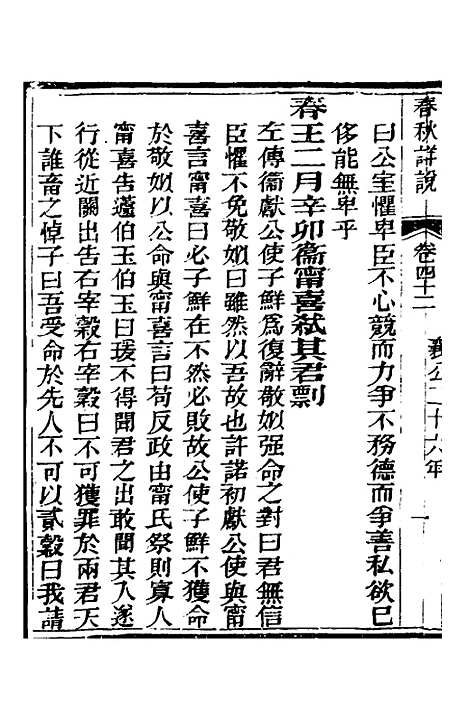 春秋詳說 卷四十二 襄公二十六年 一
曰公室懼卑臣不心競而力爭不務德而爭善私欲已
侈能無卑乎
春王二月辛卯衞甯喜弒其君剽
左傳衞獻公使子鮮爲復辭敬姒强命之對曰君無信
臣懼不免敬姒曰雖然以吾故也許諾初獻公使與甯
喜言甯喜曰必子鮮在不然必敗故公使子鮮不獲命
於敬姒以公命與甯喜言曰苟反政由甯氏祭則寡人
甯喜告蘧伯玉伯玉曰瑗不得聞君之出敢聞其入遂
行從近關出告右宰穀右宰穀曰不可獲罪於兩君天
下誰畜之悼子曰吾受命於先人不可以貳穀曰我請